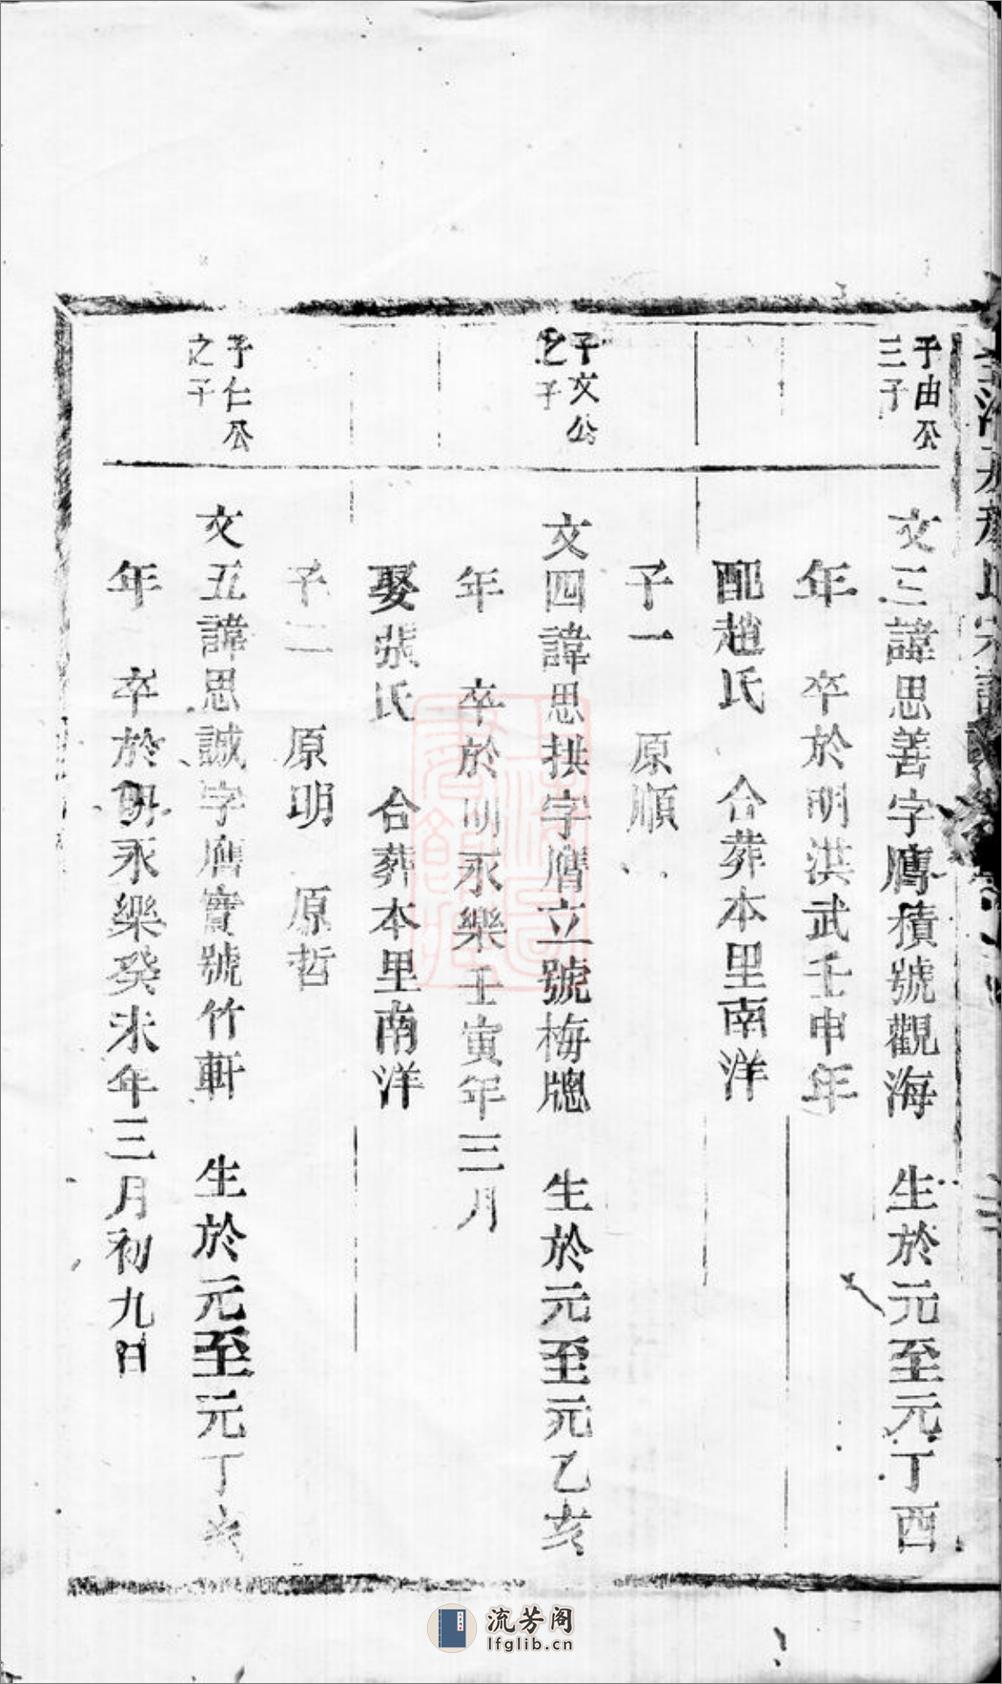 于由公
三子
文三諱思善字膺積號觀海 生於元至元丁酉
年 卒於明洪武壬申年
配趙氏 合葬本里南洋
子一 原順
子文公
之子
文四諱思拱字膺立號梅牕 生於元至元乙亥
年 卒於明永樂壬寅年三月
娶張氏 合葬本里南洋
子二 原明 原哲
子仁公
之子
文五諱思誠字膺實號竹軒 生於元至元丁亥
年 卒於明永樂癸未年三月初九日
流芳阁
lfglib.cn